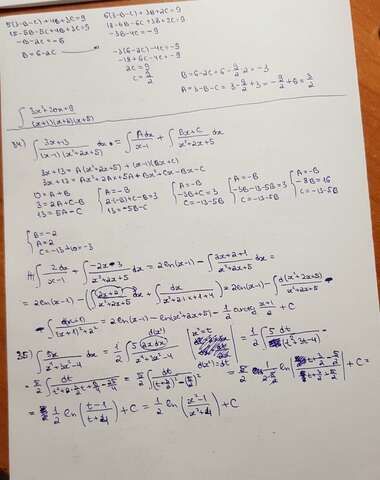 5(3-B-C)+4B+3C=9
15-5B-5C+4B+3C=9
-B-2C=-6
B=6-2C
6(3-B-C)+3B+2C=9
18-6B-6C+3B+2C=9
-3B-4C=-9
-3(6-2C)-4C=-9
-18+6C-4C=-9
2C=9
C=9/2
B=6-2C=6-9/2·2=-3
A=3-B-C=3-9/2+3=-9/2+6=3/2
∫ (3x²+20x+9)/((x+1)(x+2)(x+5))
34) ∫ (3x+13)/((x-1)(x²+2x+5)) dx = ∫ Adx/(x-1) + ∫ (Bx+C)/(x²+2x+5) dx
3x+13=A(x²+2x+5)+(x-1)(Bx+C)
3x+13=Ax²+2Ax+5A+Bx²+Cx-Bx-C
0=A+B
3=2A+C-B
13=5A-C
A=-B
2(-B)+C-B=3
13=-5B-C
A=-B
-3B+C=3
C=-13-5B
A=-B
-3B-13-5B=3
C=-13-5B
A=-B
-8B=16
C=-13-5B
B=-2
A=2
C=-13+10=-3
∫ 2dx/(x-1) + ∫ (-2x-3)/(x²+2x+5) dx = 2ln(x-1) - ∫ (2x+2+1)/(x²+2x+5) dx =
= 2ln(x-1) - (∫ (2x+2)/(x²+2x+5) dx + ∫ dx/(x²+2·1·x+1+4)) = 2ln(x-1) - ∫ d(x²+2x+5)/(x²+2x+5) -
- ∫ d(x+1)/((x+1)²+2²) = 2ln(x-1) - ln(x²+2x+5) - 1/2 arctg (x+1)/2 + C
35) ∫ 5x/(x⁴+3x²-4) dx = 1/2 ∫ 5·2xdx/(x⁴+3x²-4)
d(x²)
x²=t
d(x²)=dt
= 1/2 ∫ 5dt/(t²+3t-4) =
= 5/2 ∫ dt/(t²+2·3/2·t+9/4-25/4) = 5/2 ∫ dt/((t+3/2)²-(5/2)²) = 5/2 · 1/(2·5/2) ln|(t+3/2-5/2)/(t+3/2+5/2)| + C =
= 1/2 ln((t-1)/(t+4)) + C = 1/2 ln((x²-1)/(x²+4)) + C